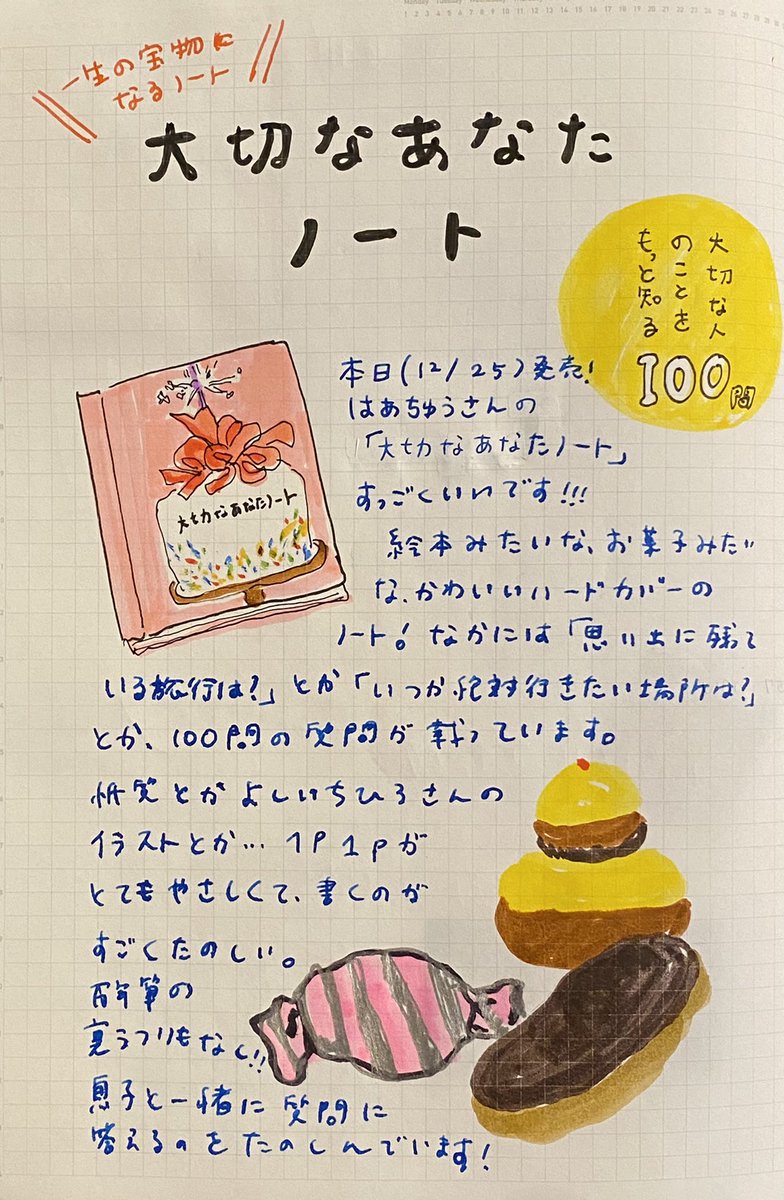 一生の宝物に
なるノート
大切なあなた
ノート
大切な人
のことを
もっと知る
100問
本日(12/25)発売!
はあちゅうさんの
「大切なあなたノート」
すっごくいいです!!!
絵本みたいな、お菓子みたい
な、かわいいハードカバーの
ノート! なかには「思い出に残って
いる旅行は?」とか「いつか絶対行きたい場所は?」
とか、100問の質問が載っています。
紙質とかよしいちひろさんの
イラストとか… 1P1Pが
とてもやさしくて、書くのが
すごくたのしい。
万年筆の
裏うつりもなし!!
息子と一緒に質問に
答えるのをたのしんでいます!
大切なあなたノート